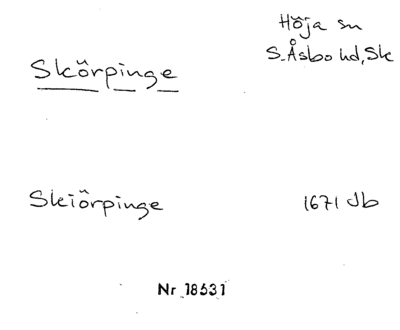 Höja sn
Skörpinge
S.Åsbo hd, Sk
Skiörpinge
1671 Jb
Nr 18531